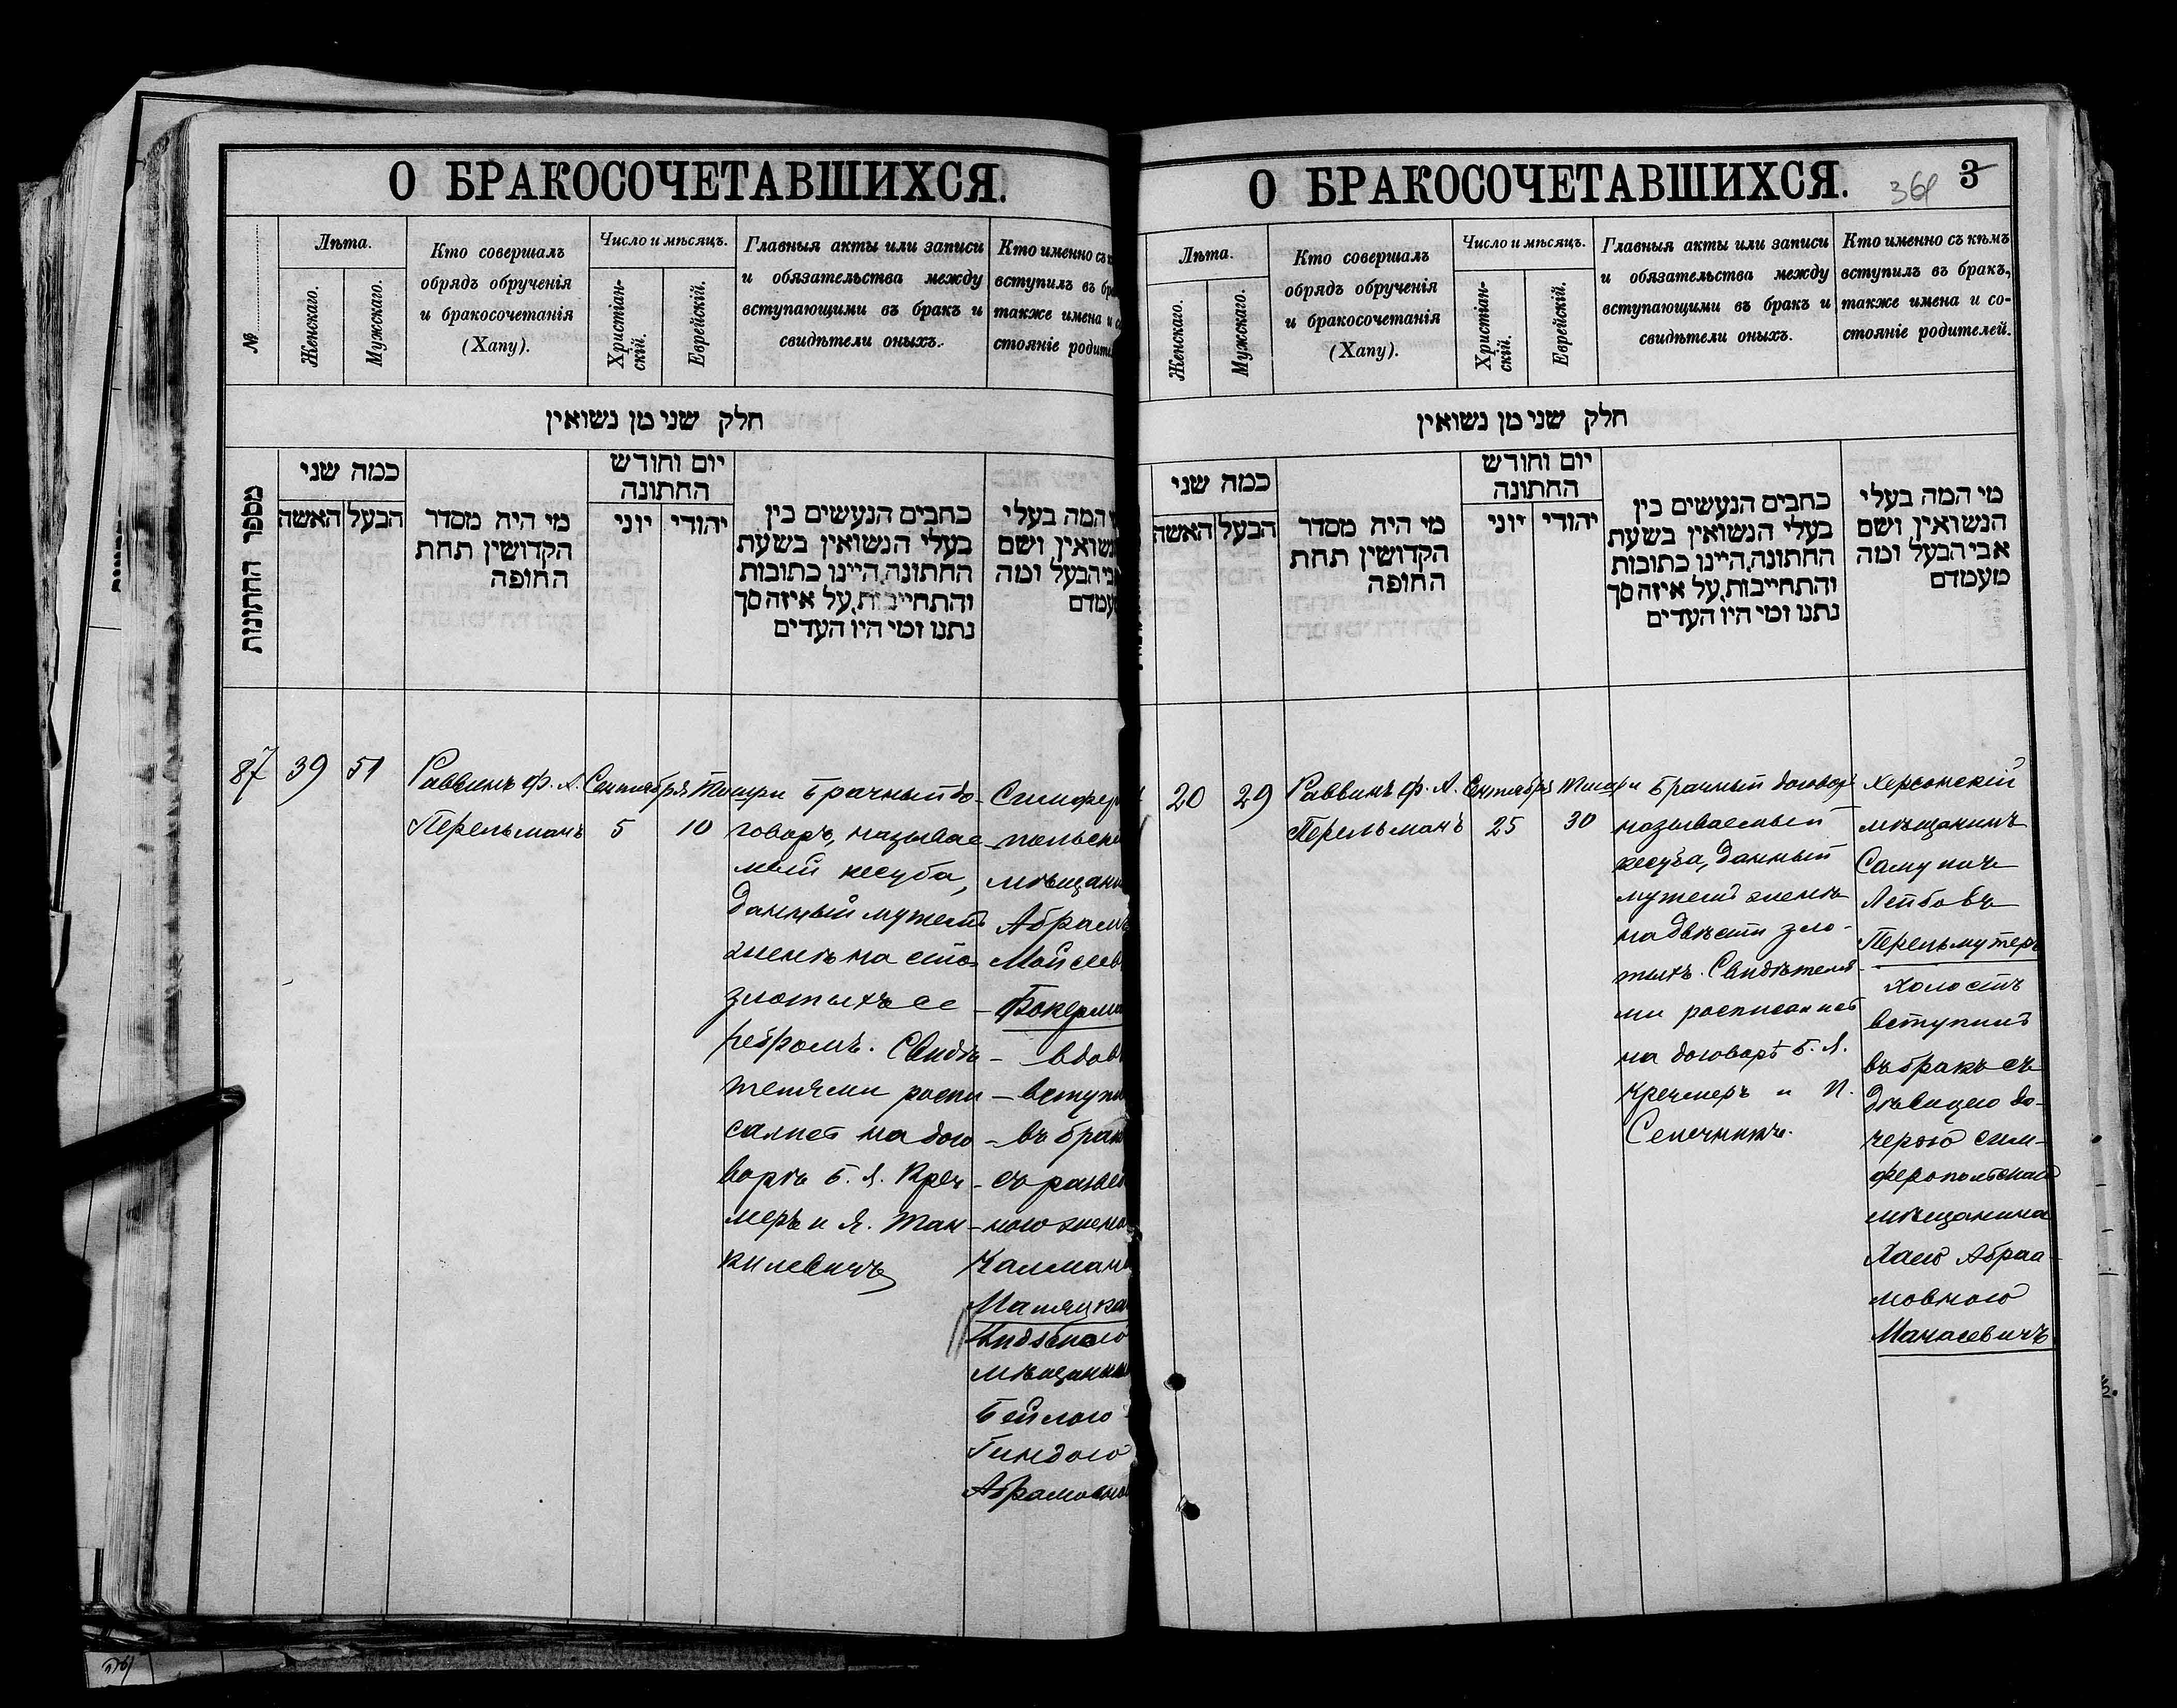 О БРАКОСОЧЕТАВШИХСЯ.
№
Лѣта.
Женскаго.
Мужскаго.
Кто совершалъ
обрядъ обрученія
и бракосочетанія
(Хапу).
Число и мѣсяцъ.
Христіан-
скій.
Еврейскій.
Главныя акты или записи
и обязательства между
вступающими въ бракъ и
свидѣтели оныхъ.
Кто именно съ
вступилъ въ
также имена и
стояніе
חלק שני מן נשואין
מספר החתונות
כמה שני
האשה
הבעל
מי היה מסדר
הקדושין תחת
החופה
יום וחודש
החתונה
יוני
יהודי
כתבים הנעשים בין
בעלי הנשואין בשעת
החתונה, היינו כתובות
והתחייבות, על איזה סך
נתנו ומי היו העדים
המה בעלי
ושם
הבעל ומה
87
39
51
Раввинъ Ф. А.
Перельманъ
Сентября
5
Тишри
10
Брачный до-
говоръ, называе-
мый кесуба,
данный мужемъ
женѣ на сто
злотыхъ се
ребромъ. Свидѣ-
телями распи
санъ на дого-
ворѣ Б. Я. Креч-
меръ и Я. Тан-
килевичъ
Абрамъ
съ
Бейлою-
Гиндою
О БРАКОСОЧЕТАВШИХСЯ.
361
3
Лѣта.
Женскаго.
Мужскаго.
Кто совершалъ
обрядъ обрученія
и бракосочетанія
(Хапу).
Число и мѣсяцъ.
Христіан-
скій.
Еврейскій.
Главныя акты или записи
и обязательства между
вступающими въ бракъ и
свидѣтели оныхъ.
Кто именно съ кѣмъ
вступилъ въ бракъ,
также имена и со-
стояніе родителей.
חלק שני מן נשואין
כמה שני
האשה
הבעל
מי היה מסדר
הקדושין תחת
החופה
יום וחודש
החתונה
יוני
יהודי
כתבים הנעשים בין
בעלי הנשואין בשעת
החתונה, היינו כתובות
והתחייבות, על איזה סך
נתנו ומי היו העדים
מי המה בעלי
הנשואין ושם
אבי הבעל ומה
מעמדם
20
29
Раввинъ Ф. А.
Перельманъ
Сентября
25
Тишри
30
Брачный договоръ
называемый
кесуба, данный
мужемъ женѣ
на двѣсти зло-
тыхъ. Свидѣтеля-
ми росписанъ
на договорѣ Б. Я.
Кречмеръ и И.
Херсонскій
мѣщанинъ
Лейбовъ
Перельмутеръ
холостъ
вступилъ
въ бракъ съ
дѣвицею до-
черью сим-
феропольскаго
мѣщанина
Хаею Абраа-
мовною
Манасевичъ